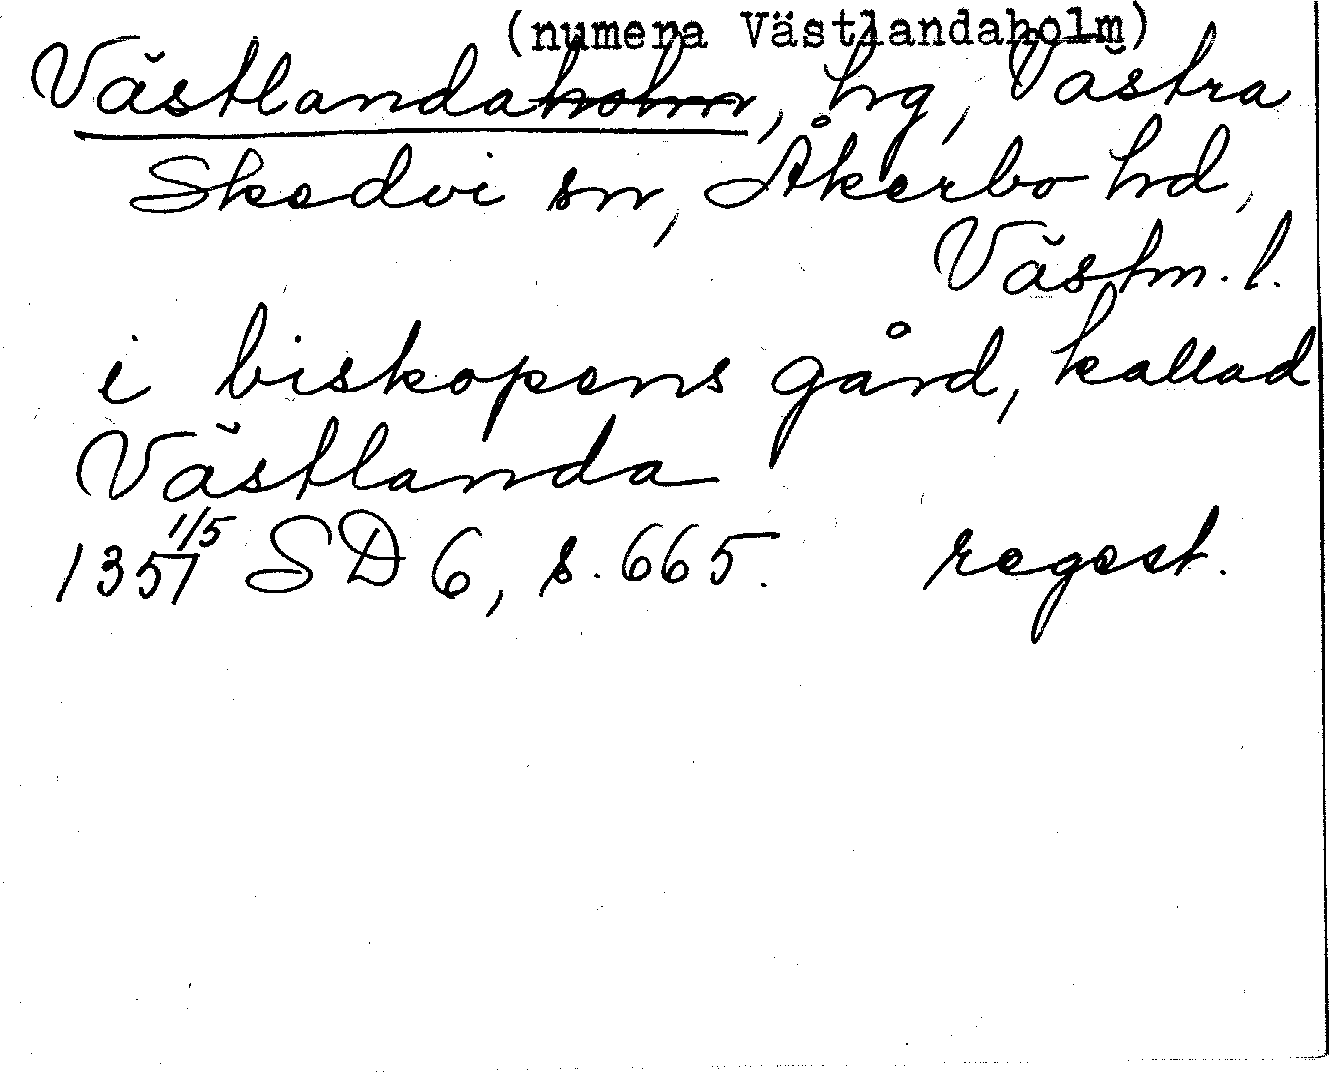 (numera Västlandaholm)
Västlandaholm, hg, Västra
Skedvi sn, Åkerbo hd,
Västm. l.
i biskopens gård, kallad
Västlanda
1357 1/5 SD 6, s. 665. regest.